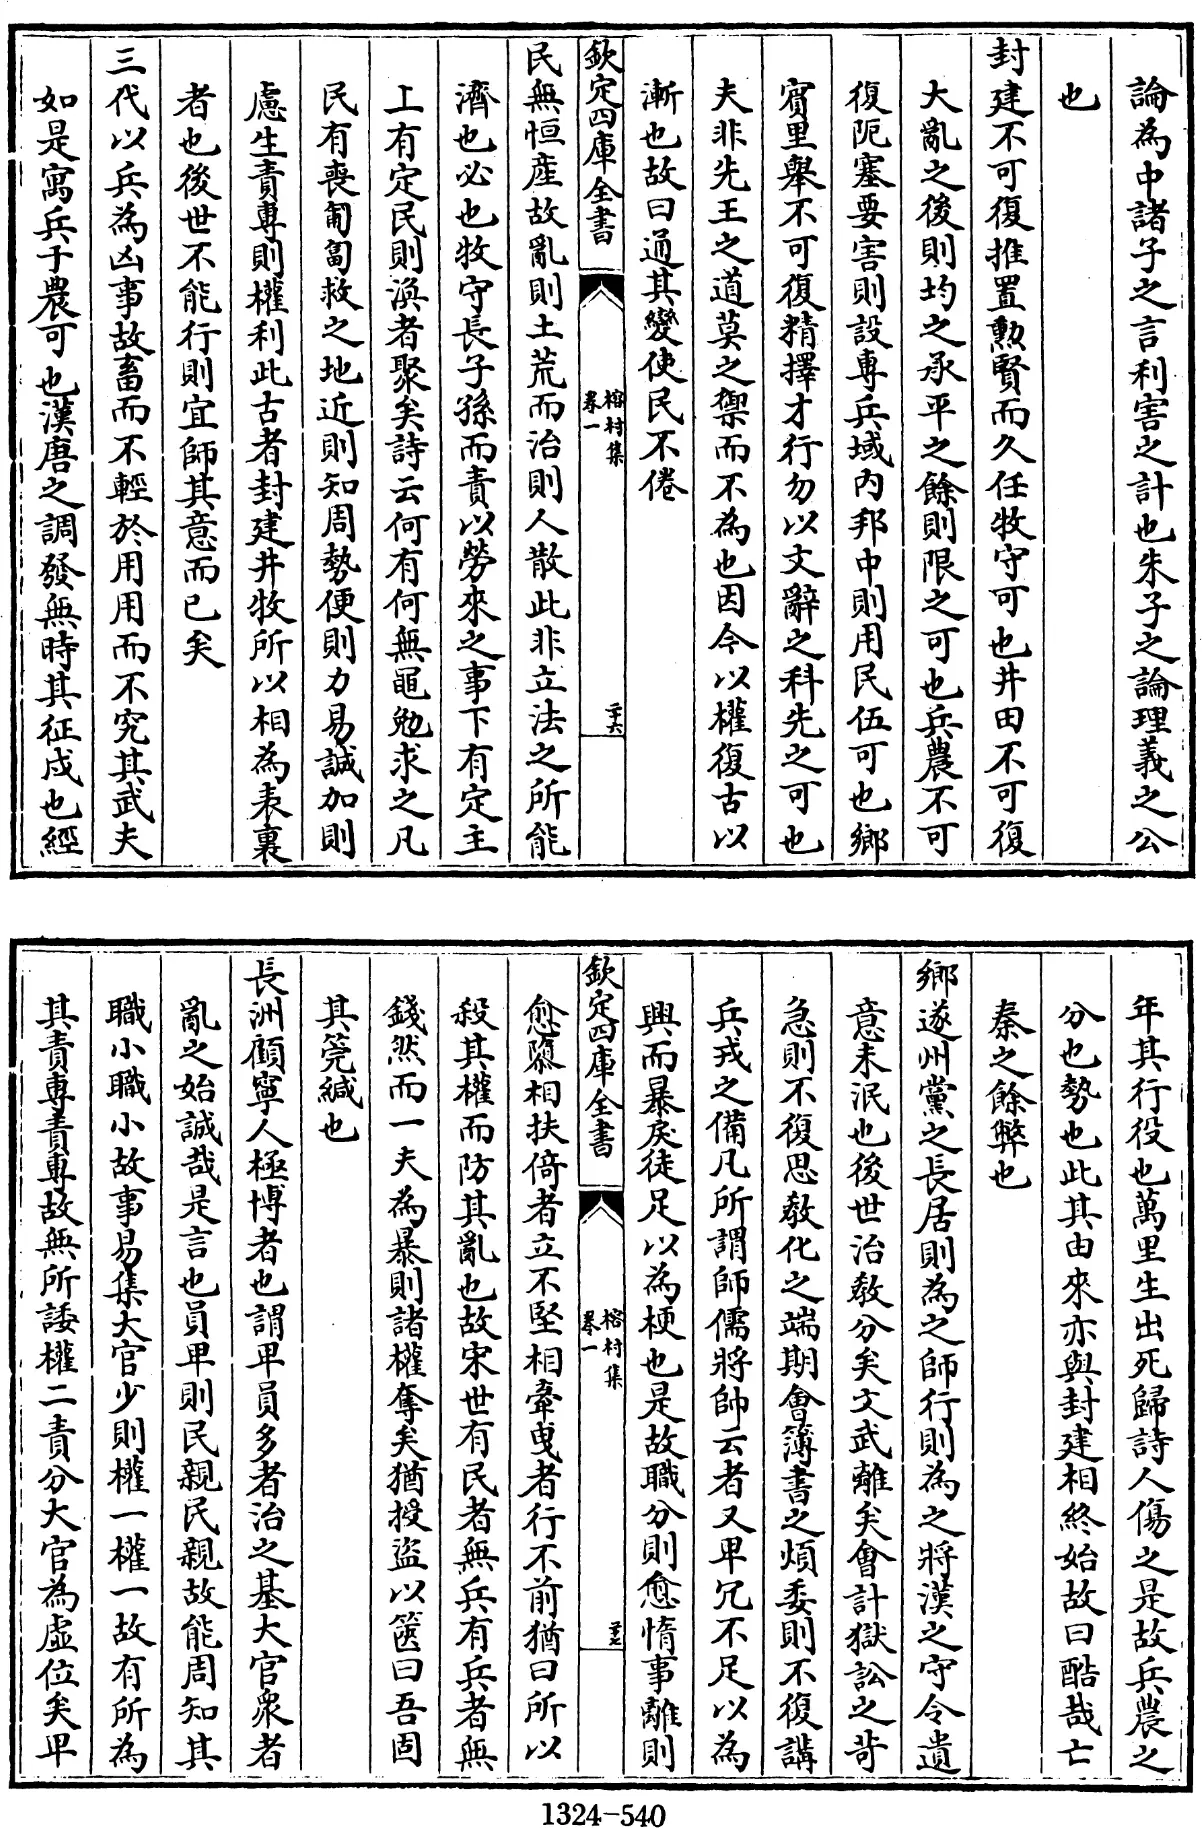 論為中諸子之言利害之計也朱子之論理義之公
也
封建不可復推置勲賢而久任牧守可也井田不可復
大亂之後則均之承平之餘則限之可也兵農不可
復阨塞要害則設專兵域内邦中則用民伍可也鄉
賓里舉不可復精擇才行勿以文辭之科先之可也
夫非先王之道莫之禦而不為也因今以權復古以
漸也故曰通其變使民不倦
欽定四庫全書
榕村集
卷一
二十六
民無恒産故亂則土荒而治則人散此非立法之所能
濟也必也牧守長子孫而責以勞來之事下有定主
上有定民則渙者聚矣詩云何有何無黽勉求之凡
民有喪匍匐救之地近則知周勢便則力易誠加則
慮生責專則權利此古者封建井牧所以相為表裏
者也後世不能行則宜師其意而已矣
三代以兵為凶事故畜而不輕於用用而不究其武夫
如是寓兵于農可也漢唐之調發無時其征戍也經
年其行役也萬里生出死歸詩人傷之是故兵農之
分也勢也此其由來亦與封建相終始故曰酷哉亡
秦之餘弊也
鄉遂州黨之長居則為之師行則為之將漢之守令遺
意未泯也後世治教分矣文武離矣會計獄訟之苛
急則不復思教化之端期會簿書之煩委則不復講
兵戎之備凡所謂師儒將帥云者又卑冗不足以為
興而暴戾徒足以為梗也是故職分則愈惰事離則
欽定四庫全書
榕村集
卷一
二十七
愈隳相扶倚者立不堅相牽曵者行不前猶曰所以
殺其權而防其亂也故宋世有民者無兵有兵者無
錢然而一夫為暴則諸權奪矣猶授盜以篋曰吾固
其筦緘也
長洲顧寧人極博者也謂卑員多者治之基大官衆者
亂之始誠哉是言也員卑則民親民親故能周知其
職小職小故事易集大官少則權一權一故有所為
其責專責專故無所諉權二責分大官為虛位矣卑
1324-540